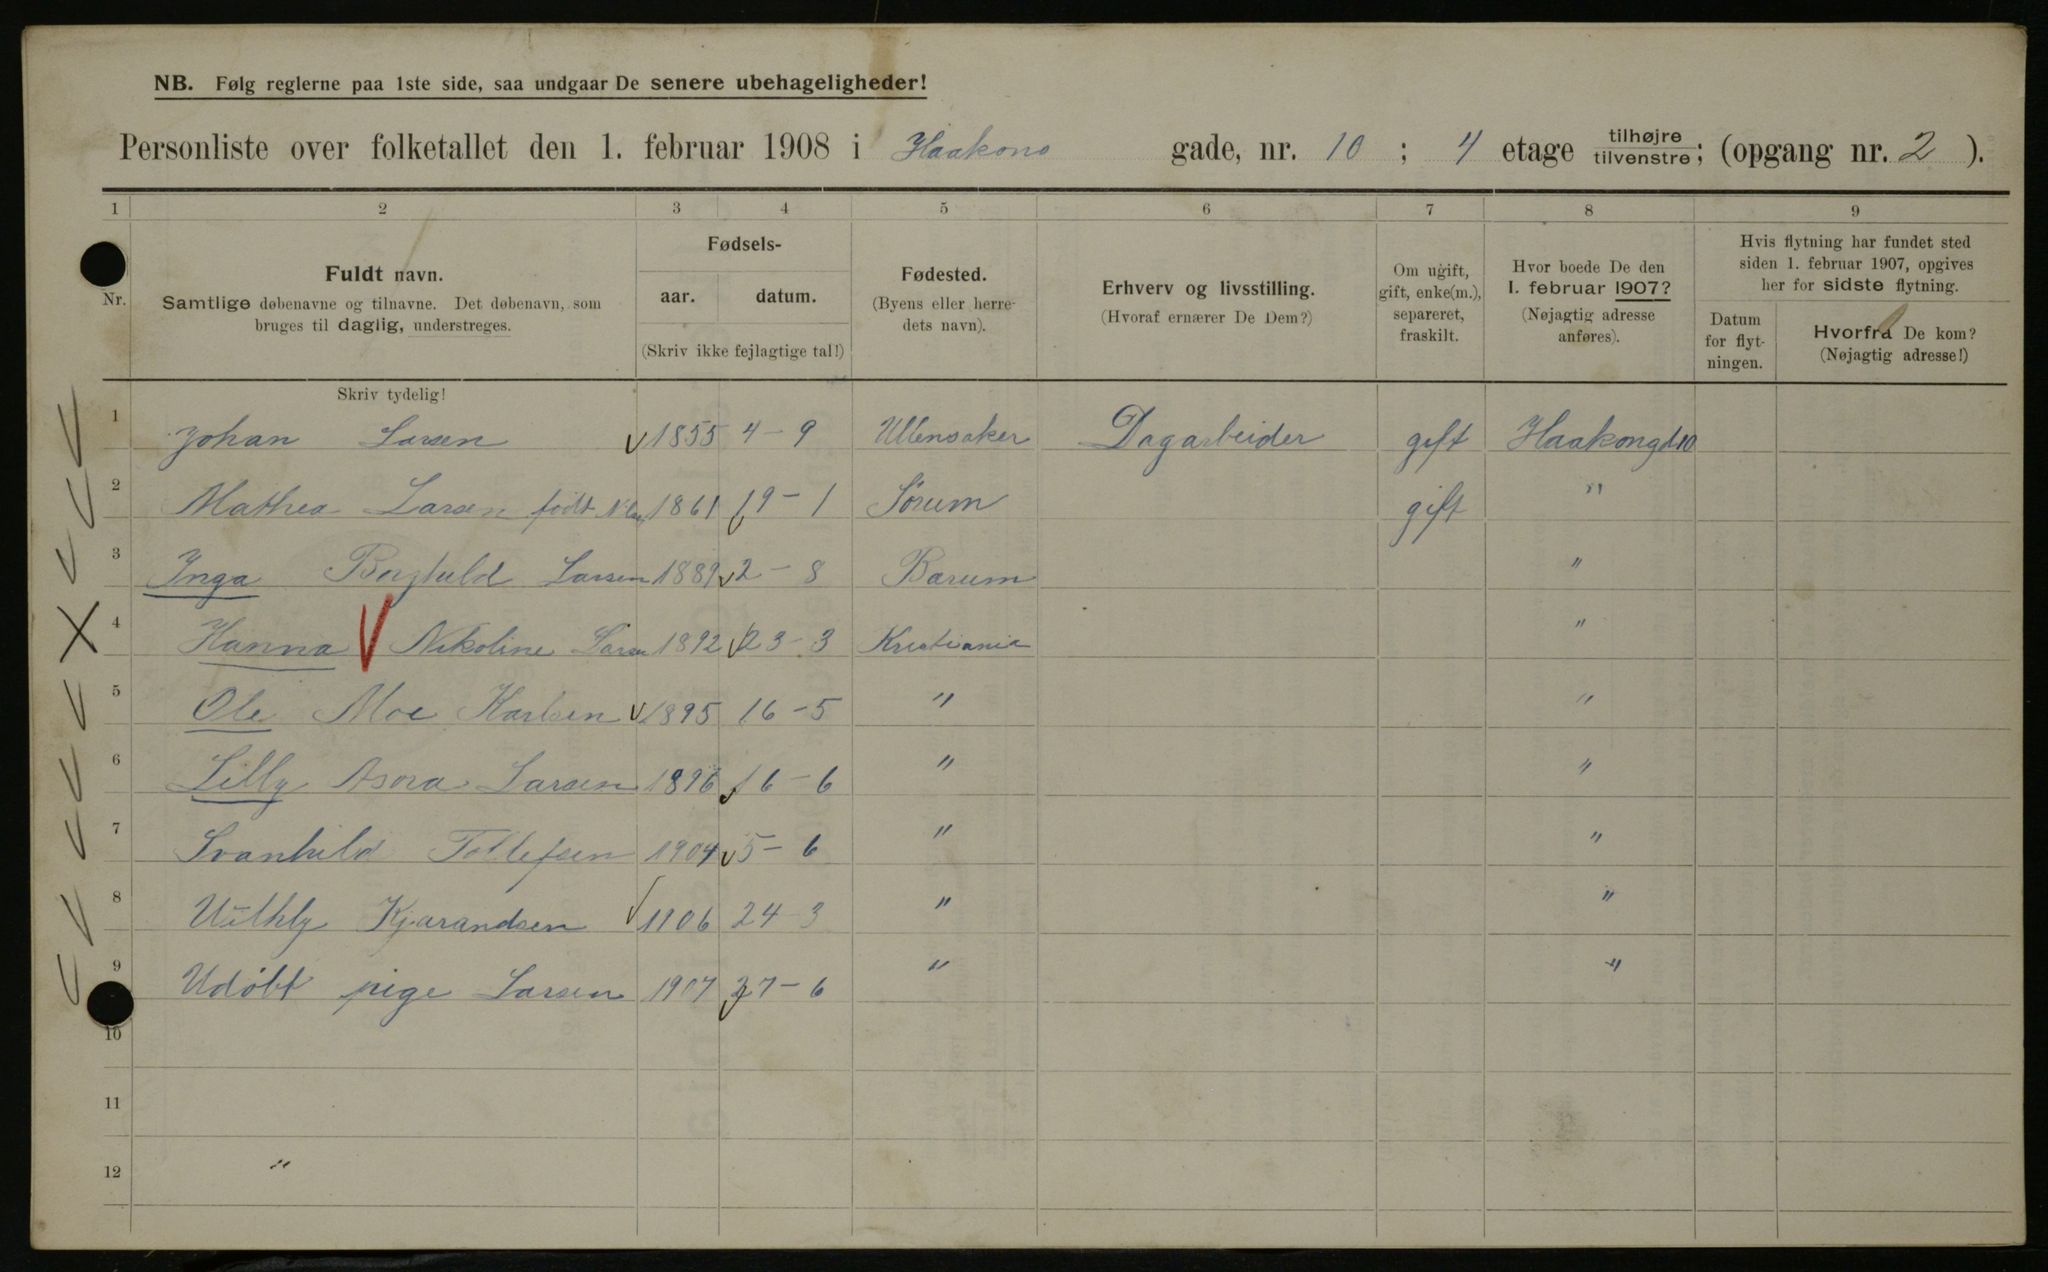 NB. Følg reglerne paa 1ste side, saa undgaar De senere ubehageligheder!
Personliste over folketallet den 1. februar 1908 i Haakons gade, nr. 10 ; 4 etage tilhøjre tilvenstre; (opgang nr. 2 ).
1 2 3 4 5 6 7 8 9
Nr.
Fuldt navn.
Samtlige døbenavne og tilnavne. Det døbenavn, som
bruges til daglig, understreges.
Skriv tydelig!
Fødsels-
aar. datum.
(Skriv ikke fejlagtige tal!)
Fødested.
(Byens eller herre-
dets navn).
Erhverv og livsstilling.
(Hvoraf ernærer De Dem?)
Om ugift,
gift, enke(m.),
separeret,
fraskilt.
Hvor boede De den
1. februar 1907?
(Nøjagtig adresse
anføres).
Hvis flytning har fundet sted
siden 1. februar 1907, opgives
her for sidste flytning.
Datum
for flyt-
ningen.
Hvorfra De kom?
(Nøjagtig adresse!)
1 Johan Larsen 1855 4-9 Ullensaker Dagarbeider gift Haakongd 10
2 Mathea Larsen født 1861 19-1 Sørum gift "
3 Inga Borghild Larsen 1889 2-8 Bærum "
4 Hanna Nikoline Larsen 1892 23-3 Kristiania "
5 Ole Moe Karlsen 1895 16-5 " "
6 Lilly Asora Larsen 1896 16-6 " "
7 Svanhild Tollefsen 1904 5-6 " "
8 Kjarandsen 1906 24-3 " "
9 Udøbt pige Larsen 1907 27-6 " "
10
11
12 "